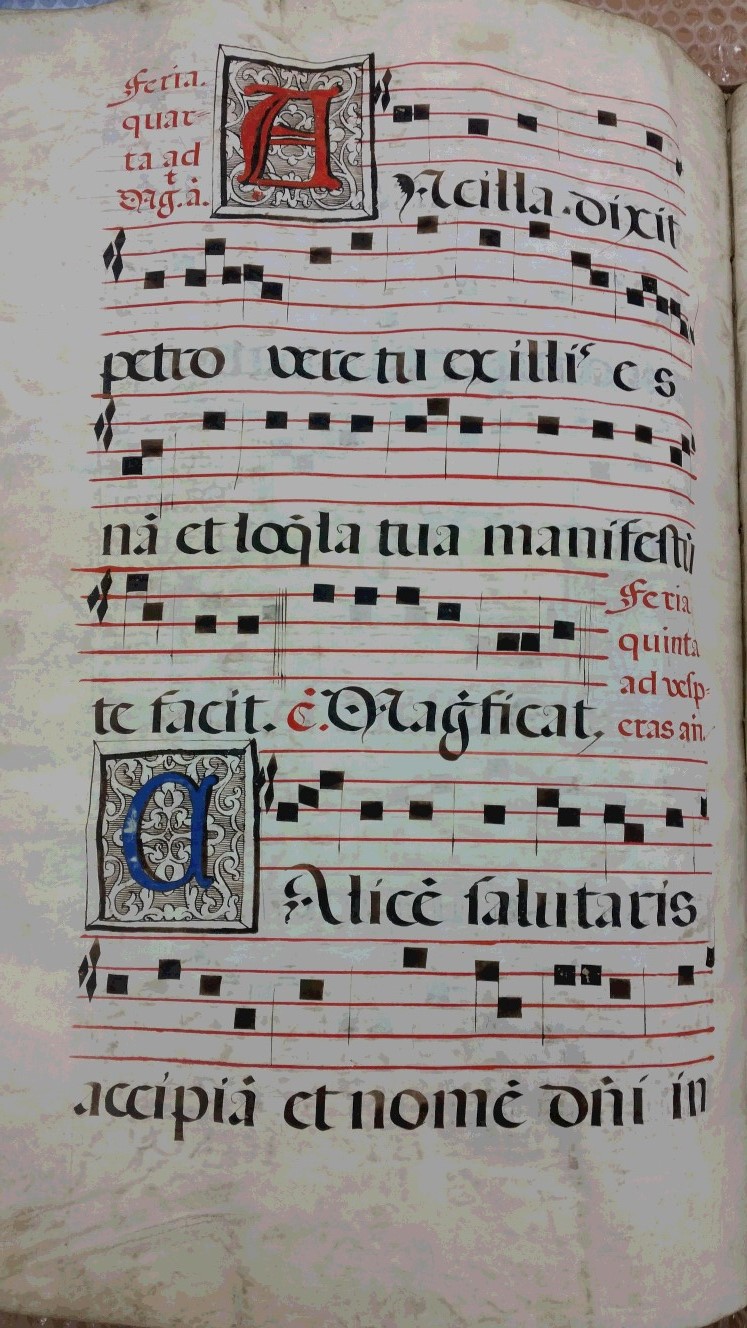 Feria.
quar-
ta ad
Mag.ã.
A Ncilla.dixit
petro vere tu ex illis es
nã et loq̇la tua manifestũ
te facit. ċ. Mag̃ficat,
Feria
quinta
ad vesp-
eras añ.
C Alicẽ salutaris
accipiã et nomẽ dñi in